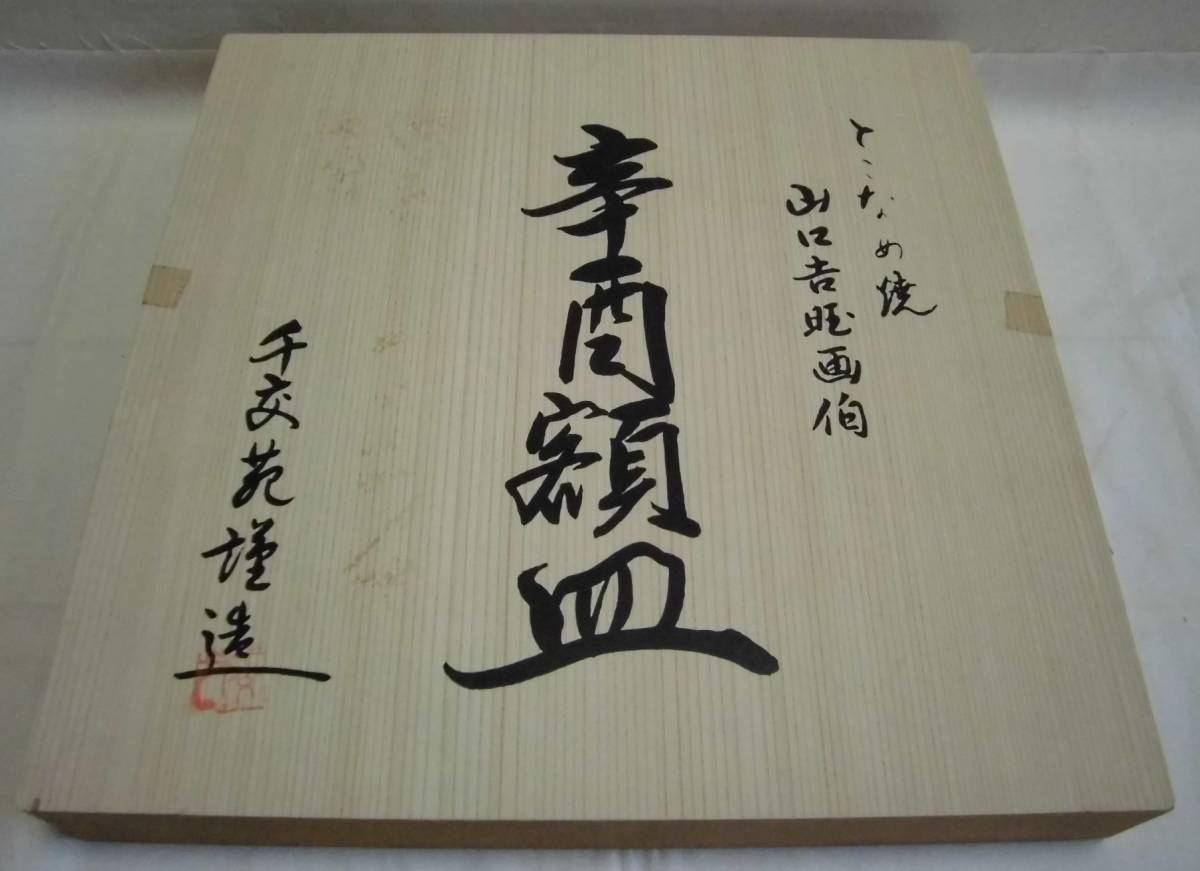 とこなめ焼
山口吉旺画伯
辛酉額皿
千交苑謹造